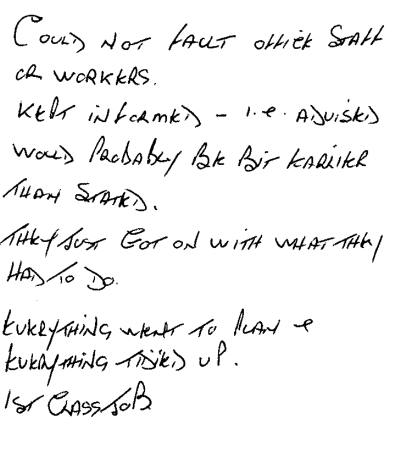 COULD NOT FAULT OFFICE STAFF
OR WORKERS.
KEPT INFORMED - i.e. ADVISED
WOULD PROBABLY BE BIT EARLIER
THAN STATED.
THEY JUST GOT ON WITH WHAT THEY
HAD TO DO.
EVERYTHING WENT TO PLAN &
EVERYTHING TIDIED UP.
1ST CLASS JOB